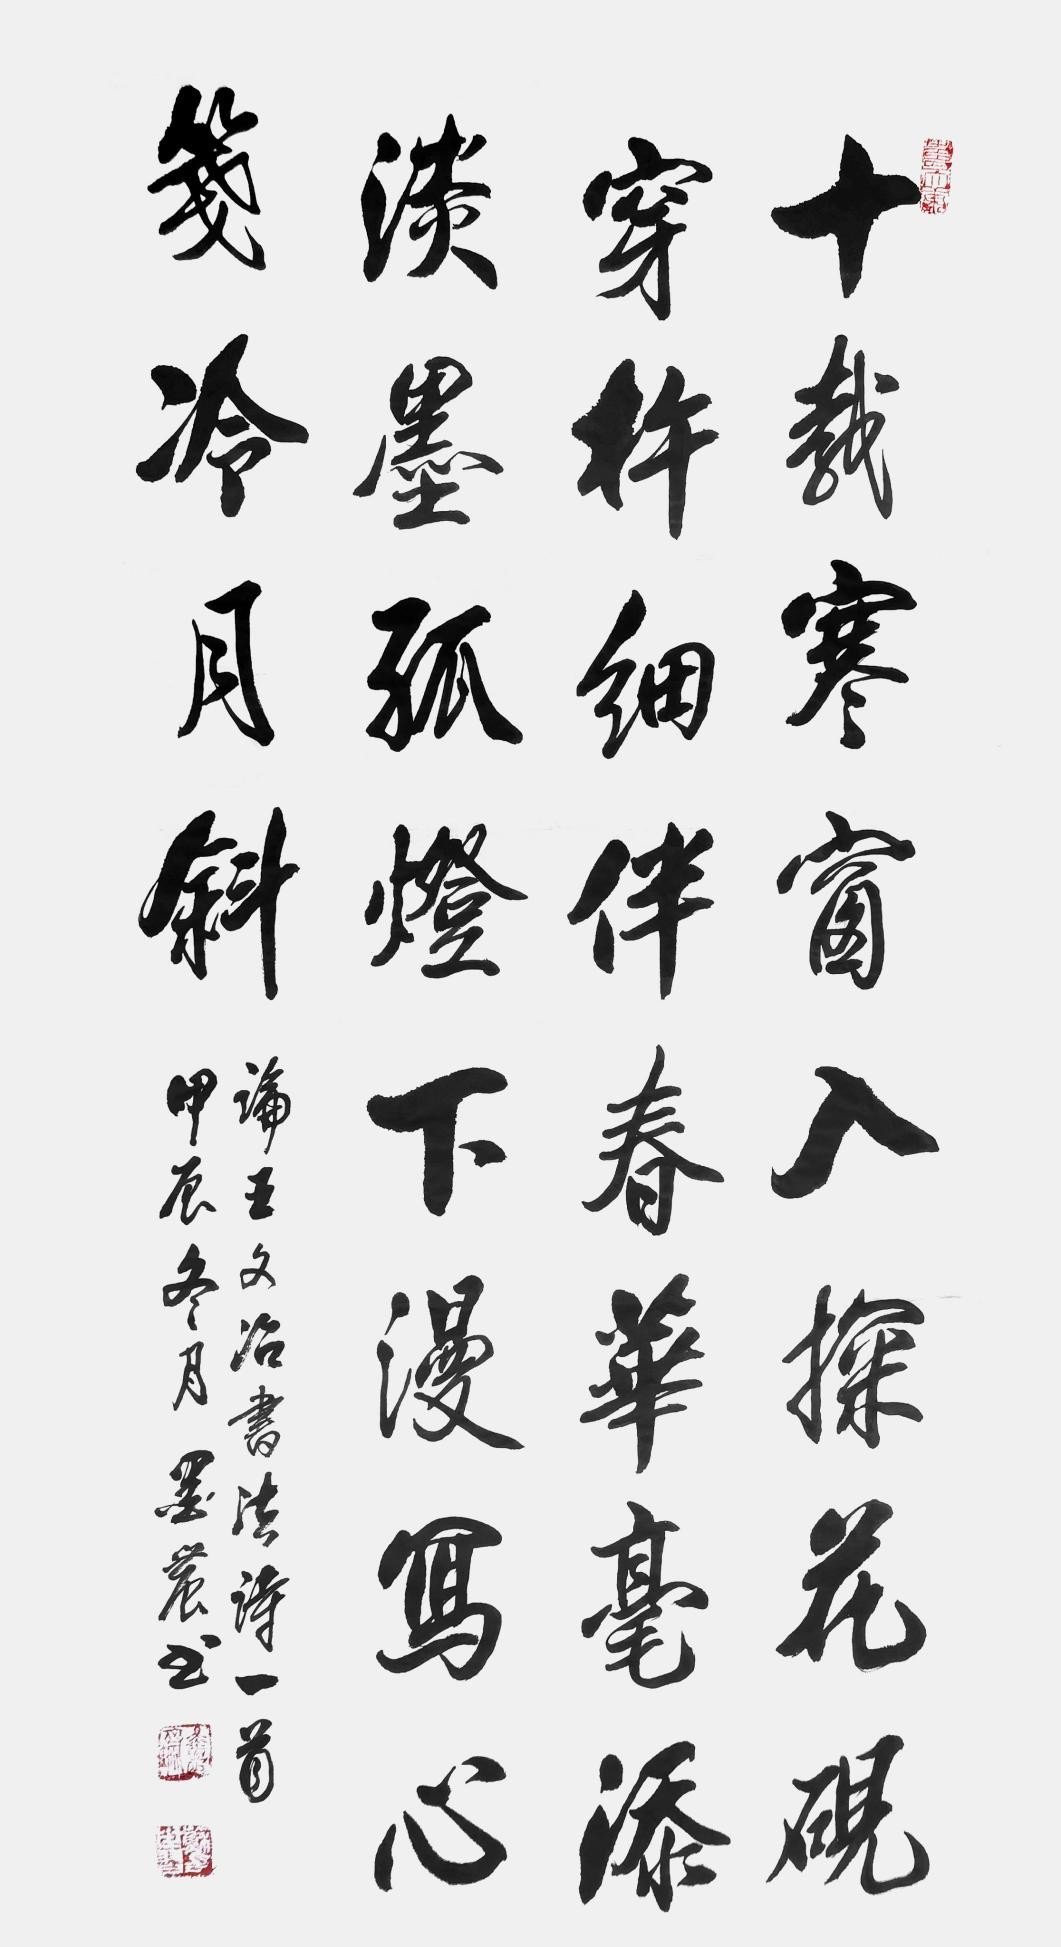 十載寒窗入探花硯
穿杵細伴春華毫添
淡墨孤燈下漫寫心
箋冷月斜
論王文治書法詩一首
甲辰冬月墨農书